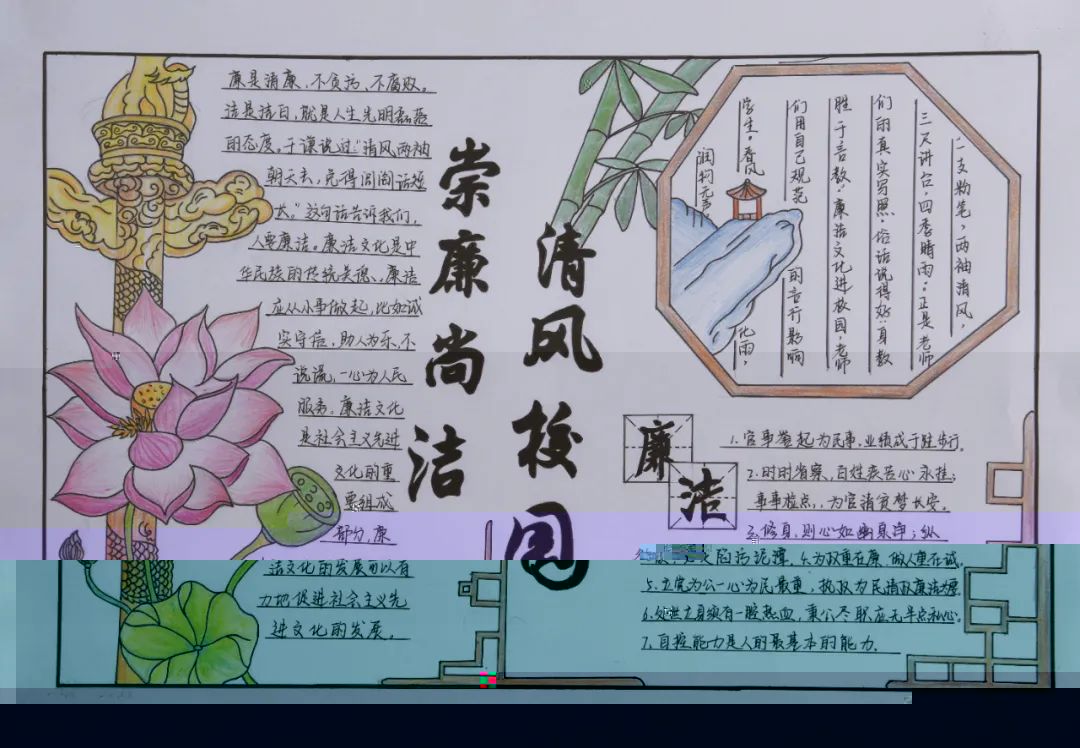 廉是清廉，不贪污，不腐败。
洁是洁白，就是人生光明磊落
的态度。于谦说过："清风两袖
朝天去，免得闾阎话短
长。"这句话告诉我们，
人要廉洁。廉洁文化是中
华民族的传统美德、廉洁
应从小事做起，比如诚
实守信，助人为乐、不
说谎，一心为人民
服务。廉洁文化
是社会主义先进
文化的重
要组成
部分，廉
洁文化的发展可以有
力地促进社会主义先
进文化的发展。
崇廉尚洁
清风校园
一支粉笔，两袖清风，
三尺讲台，四季晴雨。正是老师
们的真实写照。俗话说得好：身教
胜于言教，廉洁文化进校园，老师
们用自己规范的言行影响
学生。春风化雨，
润物无声
廉洁
1.官事举起为民事，业绩成于跬步行。
2.时时省察，百姓疾苦心永挂；
事事检点，为官清贫梦长安。
3.修身，则心如幽泉净；纵
陷污泥潭，4.为政重在廉，做人重在诚。
5.立党为公一心为民最重，执政为民清政廉洁为
6.处世立身须有一腔热血，秉公尽职应无半点私心。
7.自控能力是人的最基本的能力。